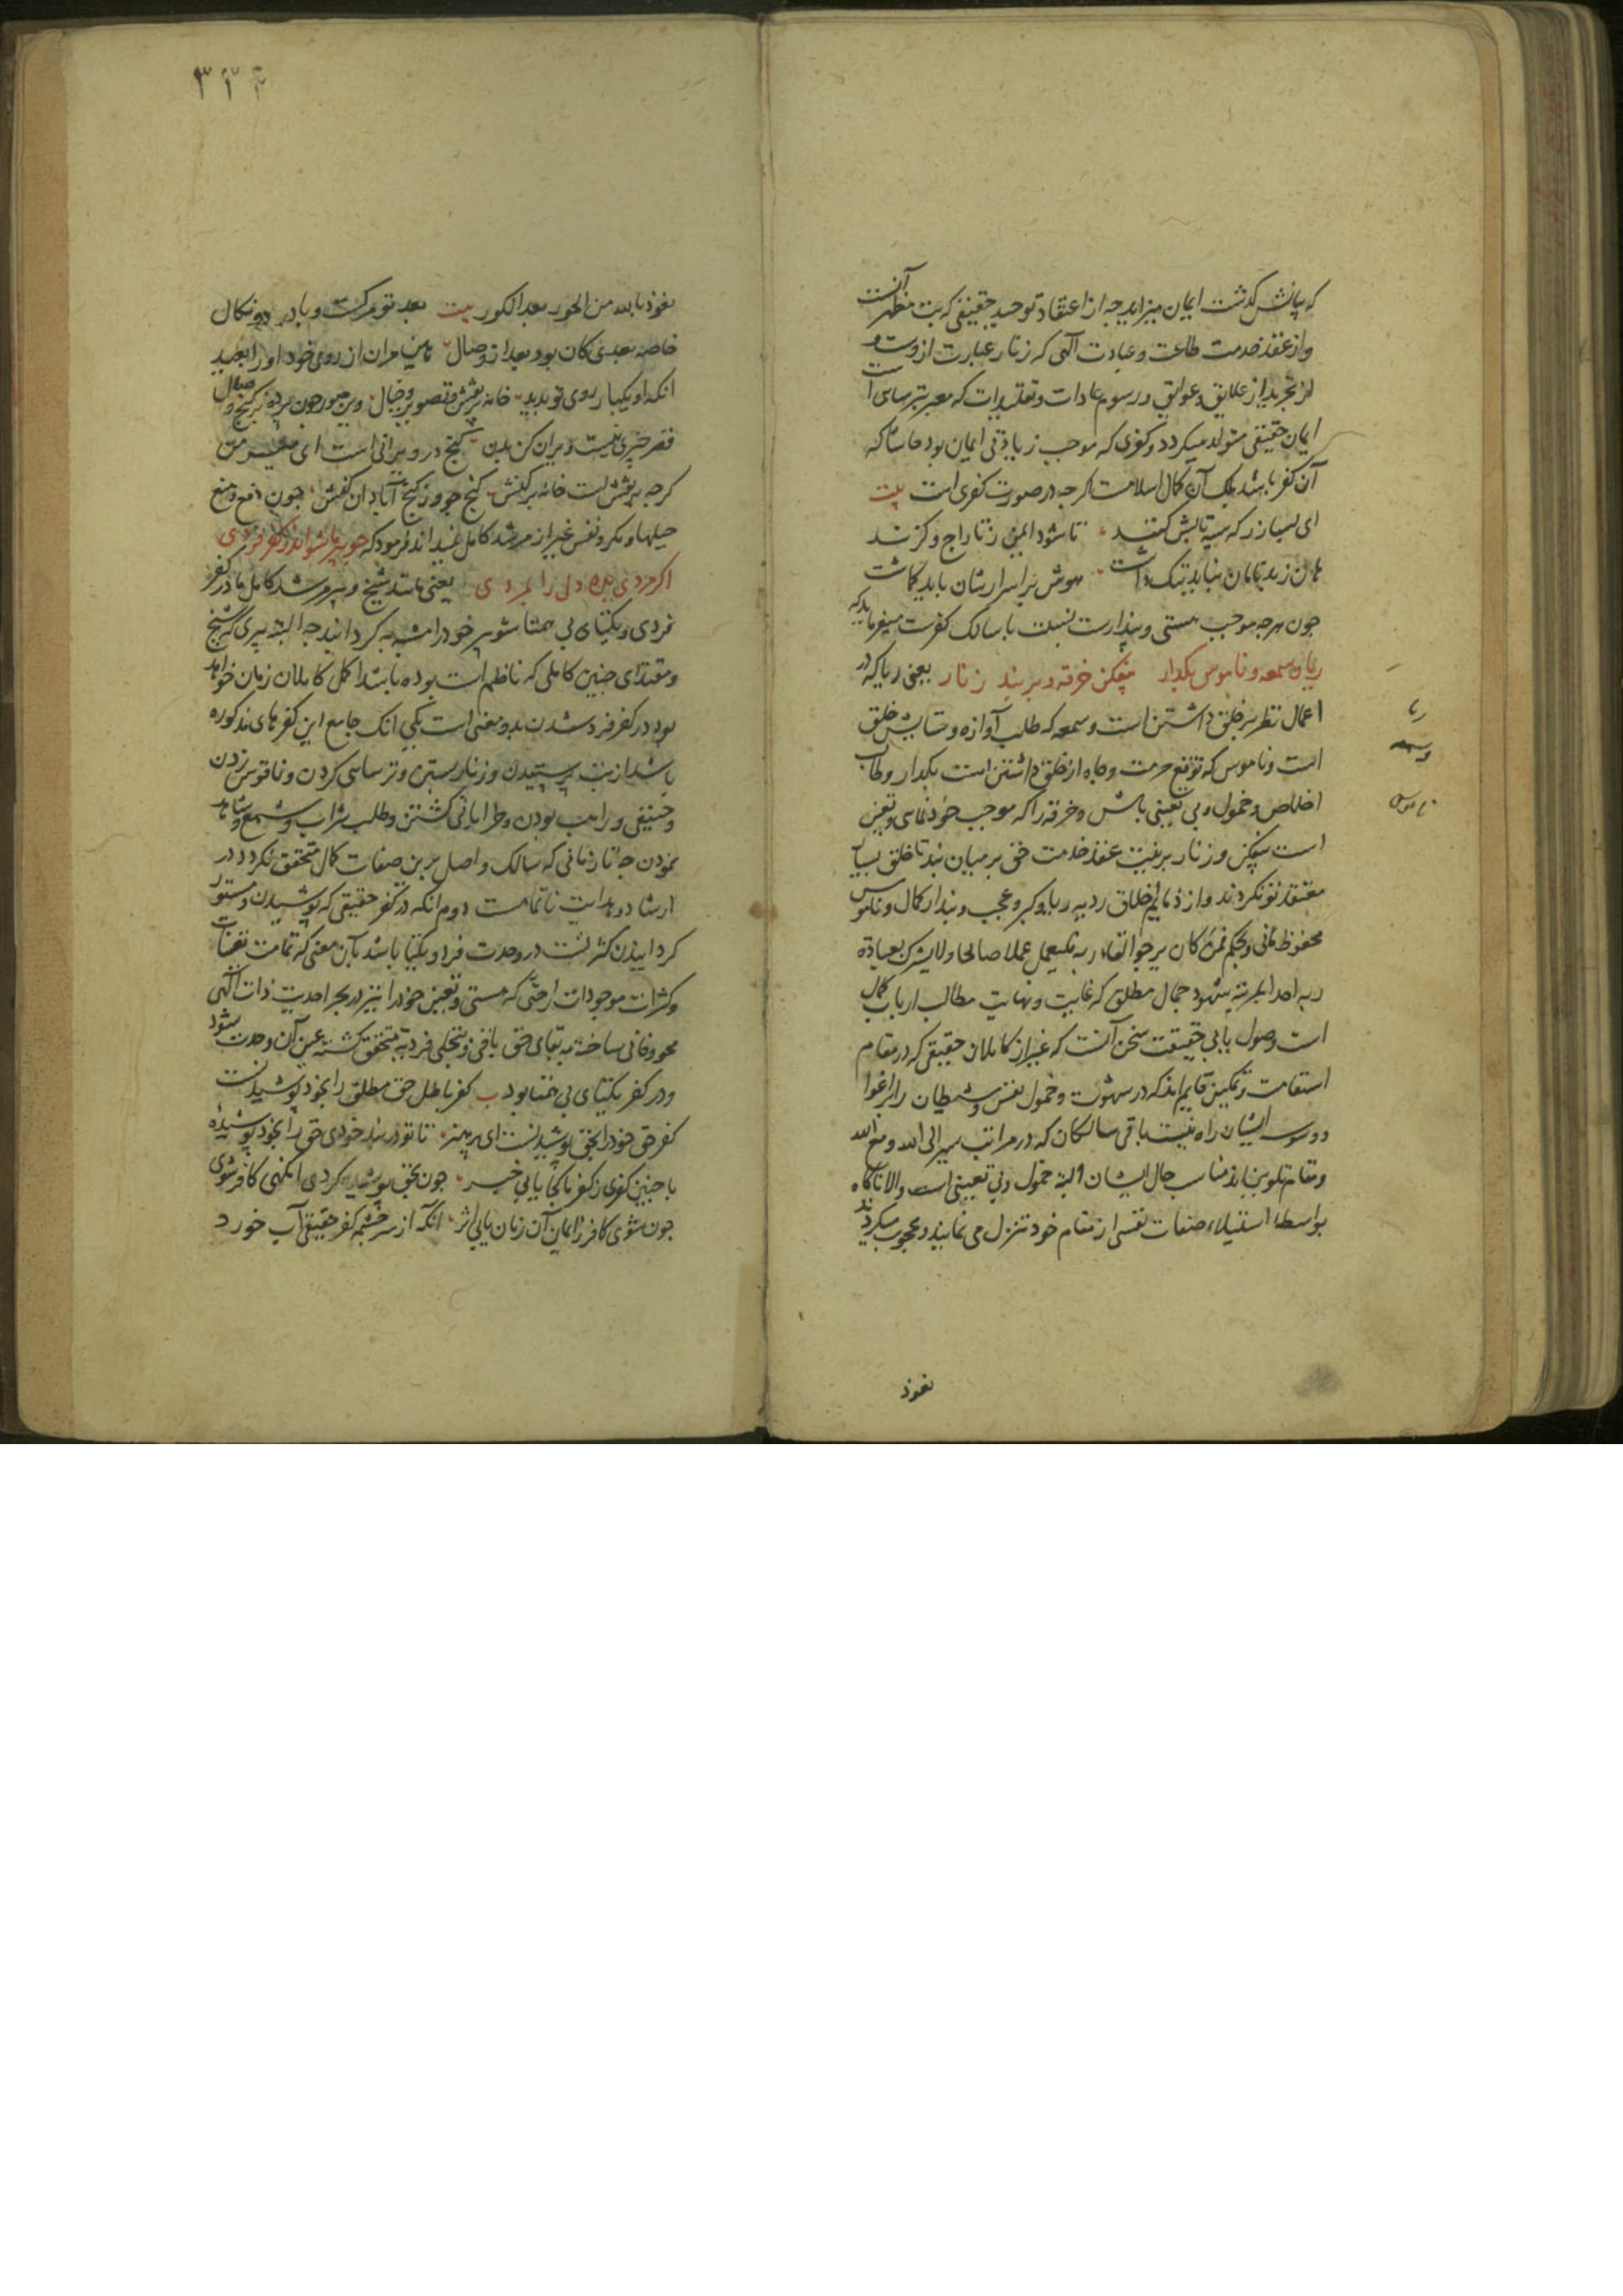 که بیانش گذشت ایمان میزاید چه از اعتقاد توحید حقیقی که بت مظهر آنست
و از عقد خدمت طاعت و عبادت الهی که زنار عبارت ازوست و
از تجرید از علایق و عوایق و رسوم عادات و تقلیدات که معبر بترسایی است
ایمان حقیقی متولد میکردد و کفری که موجب زیادتی ایمان بود حاشا که
آن کفر باشد بلک آن کمال اسلامست اکرچه در صورت کفری است بیت
ای بسا زر که سیه تابش کنند تا شود ایمن ز تاراج و کزند
هوش بر اسرار شان باید کماشت
چون هرچه موجب هستی و پندارست نسبت با سالک کفرست میفرماید که
ریا و سمعه و ناموس بکذار بیفکن خرقه و بربند زنار یعنی ریا که در
اعمال نظر بر خلق داشتن است و سمعه که طلب آوازه و ستایش خلق
است و ناموس که توقع حرمت و جاه از خلق داشتن است بکذار و طالب
اخلاص و خمول و بی تعینی باش و خرقه را که موجب خودنمایی و تعین
است بیفکن و زنار بربند عقد خدمت حق بر میان بند تا خلق بسیار
معتقد تو نکردند و از ذمایم اخلاق ردیه ریا و کبر و عجب و پندار کمال و ناموس
محفوظ مانی و بحکم فمن کان یرجوا لقاء ربه فلیعمل عملا صالحا ولا یشرک بعبادة
ربه احدا بمرتبه شهود جمال مطلق که غایت و نهایت مطالب ارباب کمال
است وصول یابی حقیقت سخن آنست که غیر از کاملان حقیقی که در مقام
استقامت و تمکین قایم اند که در شهوت و خمول نفس و شیطان را بر اغوا
و وسوسه ایشان راه نیست باقی سالکان که در مراتب سیر الی الله و مع الله
و مقام تلوین اند مناسب حال ایشان البته خمول و بی تعینی است والا ناکاه
بواسطه استیلاء صفات نفسی از مقام خود تنزل می نمایند و محجوب میکردند
ریا
وسمعه
ناموس
نعوذ
۳۲۴
نعوذ بالله من الحور بعد الکور بیت بعد تو مرکست و با درد و نکال
خاصه بعدی کان بود بعد از وصال هین مران از روی خود او را بعید
انکه او یکبار روی تو بدید خانه پر نقش و تصویر و خیال وین صور چون پرده بر کنج وصال
کنج در ویرانی است ای میر من
چون دفع و منع
حیلها و مکر نفس غیر از مرشد کامل نمیداند فرمود که چو پیر ما شو اندر کفر فردی
اکر مردی بده دل را بمردی یعنی مانند شیخ و پیر و مرشد کامل ما در کفر
فردی و یکتای بی همتا شو و پیر خود را مشبه به کردانید چه البته پیری که شیخ
و مقتدای چنین کاملی که ناظم است بوده باشد اکمل کاملان زمان خواهد
بود در کفر فرد شدن بدو معنی است یکی انک جامع این کفرهای مذکوره
باشد از بت پرستیدن و زنار بستن و ترسایی کردن و ناقوس زدن
و حنیفی و راهب بودن و خراباتی کشتن و طلب شراب و شمع و شاهد
نمودن چه تا زمانی که سالک واصل برین صفات کمال متحقق نکردد در
ارشاد و هدایت ناتمامست دوم انکه در کفر حقیقی که پوشیدن و مستور
کردانیدن کثرتست در وحدت فرد و یکتا باشد بآن معنی که تمامت تعینات
و کثرات موجودات را حتی که هستی و تعین خود را نیز در بحر احدیت ذات الهی
محو و فانی ساخته به بقای حق باقی و بتجلی فردیه متحقق کشته عین آن وحدت شود
و در کفر یکتای بی همتا بود ب کفر باطل حق مطلق را بخود پوشیدنست
کفر حق خود را بحق پوشیدنست ای پر هنر تا تو در بند خودی حق را بخود پوشیده
با چنین کفری ز کفر ما کجا یابی خبر چون بحق پوشیده کردی انکهی کافر شوی
چون شوی کافر ز ایمان آن زمان یابی اثر انکه از سرچشمه کفر حقیقی آب خورد